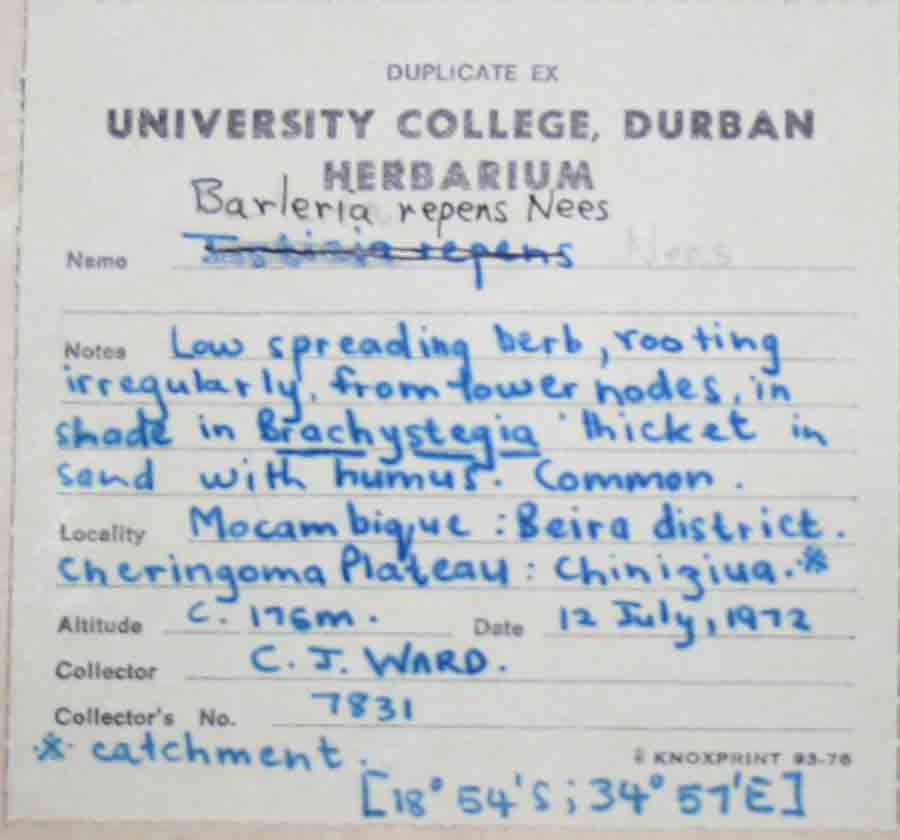 DUPLICATE EX
UNIVERSITY COLLEGE, DURBAN
HERBARIUM
Barleria repens Nees
Name repens Nees
Notes Low spreading herb, rooting
irregularly, from lower nodes, in
shade in Brachystegia thicket in
sand with humus. Common.
Locality Mocambique : Beira district.
Cheringoma Plateau : Chiniziua.*
Altitude C. 176m. Date 12 July, 1972
Collector C. J. WARD.
Collector's No. 7831
* catchment.
© KNOXPRINT 93-76
[18° 54'S ; 34° 57'E]